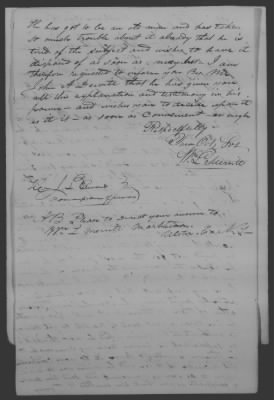 He has got to be an old man and has taken
so much trouble about it already that he is
tired of the subject and wishes to have it
disposed of as soon as may be. I am
therefore requested to inform you by Mr
John A. that he has given you
all the explanation and testimony in his
power and wishes you to decide upon it
as it is as soon as convenient as might
Respectfully
Your Obt. Svt.
Wm L. Merritt
Hon J. L. Edwards
Com. of Pensions
NB Please to direct your answer to
Wm L. Merritt Marbletown
Ulster Co. N.Y.